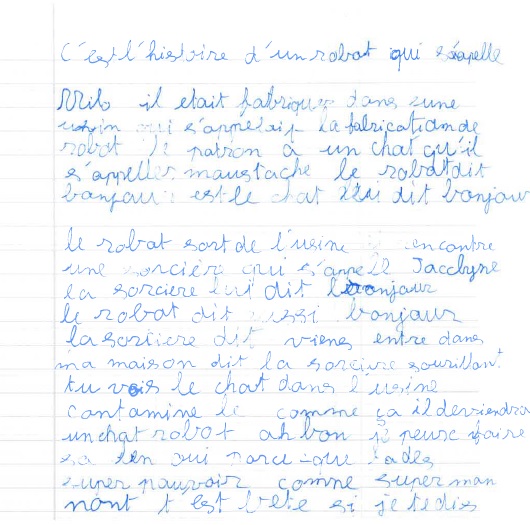 C'est l'histoire d'un robot qui s'apelle
Milo il etait fabriquer dans une
usin qui s'appelait la fabrication de
robot le patron a un chat qu'il
s'appelles moustache le robot dit
bonjour est le chat lui dit bonjour
le robot sort de l'usine rencontre
une sorcière qui s'appell Jacclyne
la sorciere lui dit bonjour
le robot dit aussi bonjour
la sorciere dit viens entre dans
ma maison dit la sorciere sourillant
tu vois le chat dans l'usine
contamine le comme ça il deviendra
un chat robot ah bon je peux faire
sa ben oui parce-que tades
super pouvoir comme super man
nont t est bete si je te dis